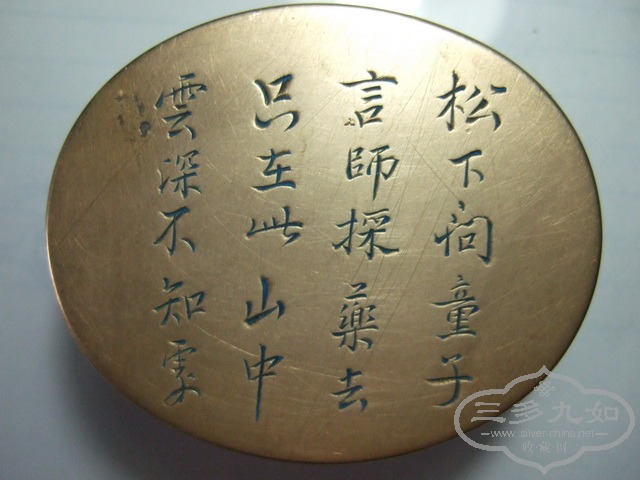 松下问童子
言師採藥去
只在此山中
雲深不知處
三多九如
www.silver-china.net
收·藏·网